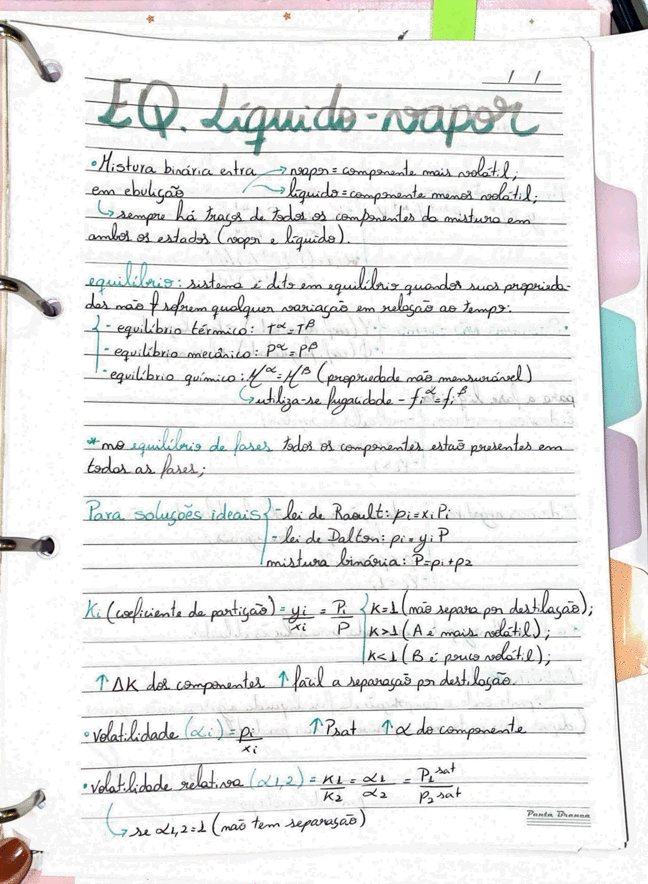 / /
EQ. Líquido-vapor
• Mistura binária entra → vapor = componente mais volátil;
em ebulição → líquido = componente menos volátil;
↳ sempre há traços de todos os componentes da mistura em
ambos os estados (vapor e líquido).
equilíbrio: sistema é dito em equilíbrio quandos suas proprieda-
des não sofrem qualquer variação em relação ao tempo:
- equilíbrio térmico: Tᵅ = Tᵝ
- equilíbrio mecânico: Pᵅ = Pᵝ
- equilíbrio químico: μᵅ = μᵝ (propriedade não mensurável)
↳ utiliza-se fugacidade - fiᵅ = fiᵝ
* no equilíbrio de fases todos os componentes estão presentes em
todas as fases;
Para soluções ideais { - lei de Raoult: pi = xi Pi
- lei de Dalton: pi = yi P
mistura binária: P = p1 + p2
Ki (coeficiente de partição) = yi/xi = Pi/P { K=1 (não separa por destilação);
K>1 (A é mais volátil);
K<1 (B é pouco volátil);
↑ ΔK dos componentes ↑ fácil a separação por destilação.
• Volatilidade (αi) = pi/xi ↑ Psat ↑ α do componente
• Volatilidade relativa (α1,2) = K1/K2 = α1/α2 = P1 sat/P2 sat
↳ se α1,2 = 1 (não tem separação)
Ponta Branca